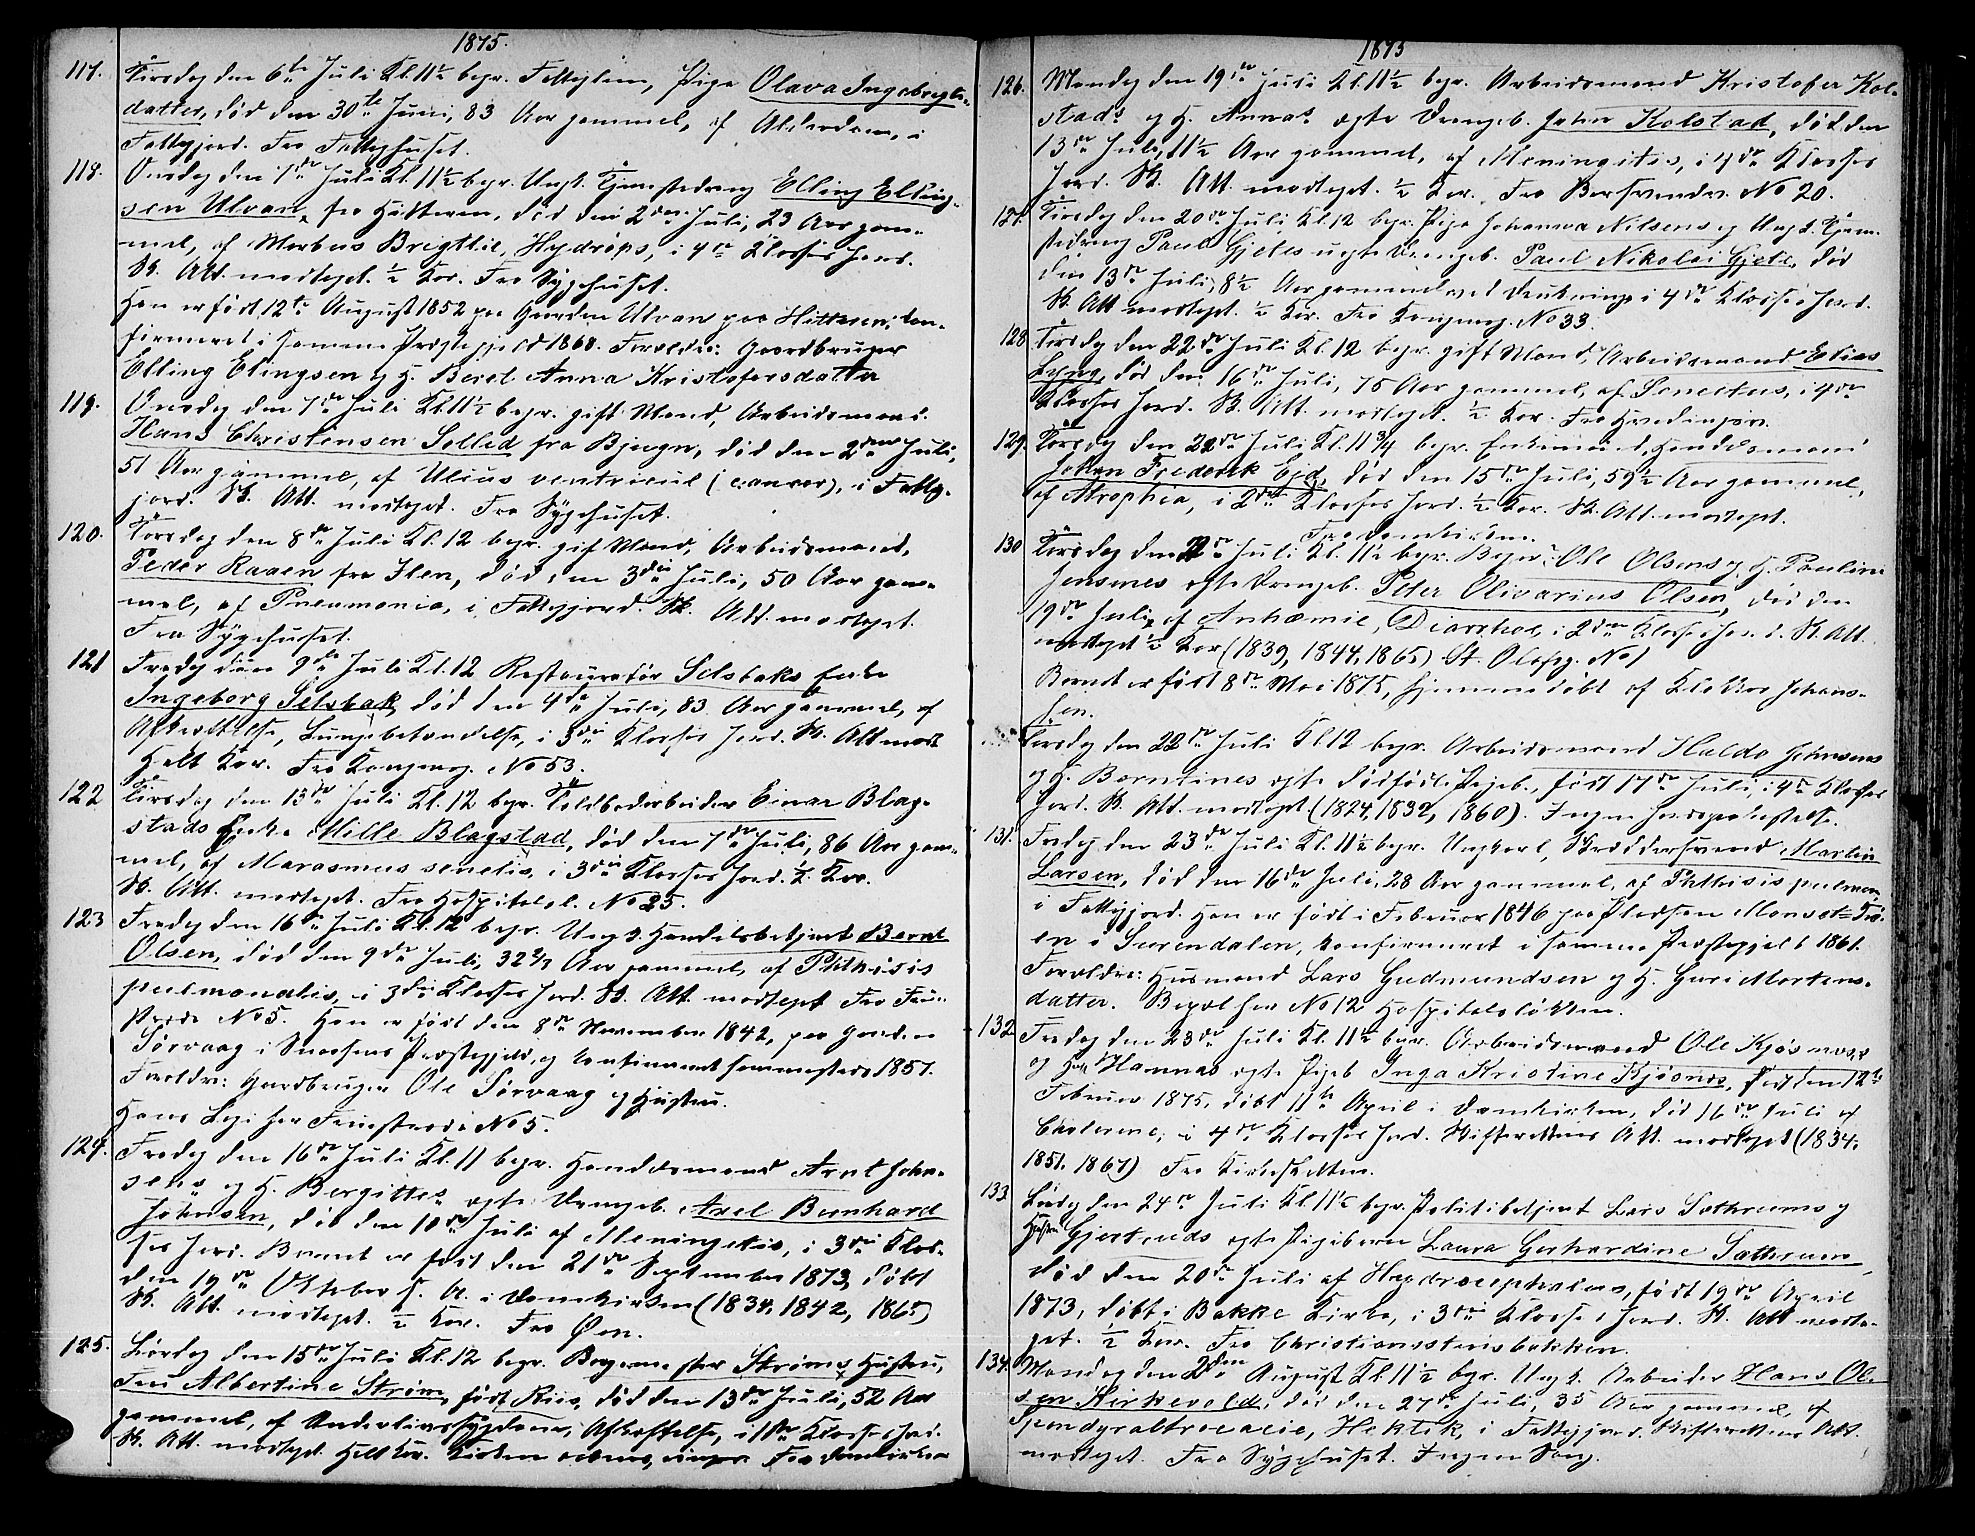 1875.
117. Tirsdag den 6te Juli Kl. 11½ begr. Fattiglem, Pige Olava Ingebrigts-
datter, død den 30te Juni, 83 Aar gammel, af Alderdom, i
Fattigjord. Fra Fattighuset.
118. Onsdag den 7de Juli Kl. 11½ begr. Ungk. Tjenestedreng Elling Elling-
sen Ulvan, fra Hitteren, død den 2den Juli, 23 Aar gam-
mel, af Morbus Brigthii, Hydrops, i 4de Klasses Jord.
Sk. Att. modtaget. ½ Kor. Fra Sygehuset.
Han er født 12te August 1852 paa Gaarden Ulvan paa Hitteren, kon-
firmeret i samme Præstegjeld 1868. Forældre: Gaardbruger
Elling Elingsen og H. Beret Anna Kristofersdatter
119. Onsdag den 7de Juli Kl. 11½ begr. gift Mand, Arbeidsmand
Hans Christensen Sollid fra Bjugn, død den 2den Juli,
51 Aar gammel, af Ulcus ventriculi (cancer), i Fattig-
jord. Sk. Att. modtaget. Fra Sygehuset.
120. Torsdag den 8de Juli Kl. 12 begr. gift Mand, Arbeidsmand,
Peder Raaen fra Ilen, død den 3die Juli, 50 Aar gam-
mel, af Pneumonia, i Fattigjord. Sk. Att. modtaget.
Fra Sygehuset.
121 Fredag den 9de Juli Kl. 12 Restauratør Selsbaks Enke
Ingeborg Selsbak, død den 4de Juli, 83 Aar gammel, af
Afkræftelse, Lungebetændelse, i 3die Klasses Jord. Sk. Att modt
Helt Kor. Fra Kongensg. No 53.
122 Tirsdag den 13de Juli Kl. 12 begr. Toldbodarbeider Einar Blag-
stads Enke Mille Blagstad, død den 7de Juli, 86 Aar gam-
mel, af Marasmus senilis, i 3die Klasses Jord. ½ Kor.
Sk. Att. modtaget. Fra Hospitalsl. No 25.
123 Fredag den 16de Juli Kl. 12 begr. Ungk. Handelsbetjent Bernt
Olsen, død den 9de Juli, 32 Aar gammel, af Phthisis
pulmonalis, i 3die Klasses Jord. Sk. Att. modtaget Fra
No 5. Han er født den 8de November 1842, paa Gaarden
Sørvaag i Snaasens Præstegjeld, og konfirmeret sammesteds 1857.
Forældre: Gaardbruger Ole Sørvaag og Hustru.
Hans Logi her No 5.
124. Fredag den 16de Juli Kl. 11 begr. Handelsmand Arnt John-
sens og H. Bergittes ægte Drengeb. Axel Bernhard
Johnsen, død den 10de Juli af Meningitis, i 3die Klas-
ses Jord. Barnet er født den 21de September 1873, døbt
den 19de Oktober s. A. i Domkirken (1834, 1842, 1865)
Sk. Att. modtaget. ½ Kor. Fra Øen.
125. Lørdag den 15de Juli Kl. 12 begr. Borgermester Strøms Hustru,
Fru Albertine Strøm, født Riis, død den 13de Juli, 52 Aar
gammel, af Underlivssygdom, Afkræftelse, i 1ste Klasses Jord.
Sk. Att. modtaget. Helt Kor. Fra Domkirken
1875
126. Mandag den 19de Juli Kl. 11½ begr. Arbeidsmand Kristofer Kol-
stads og H. Annas ægte Drengeb. Johan Kolstad, død den
13de Juli, 11½ Aar gammel, af Meningitis, i 4de Klasses
Jord. Sk. Att. modtaget. ½ Kor. Fra Bersvendv. No 20.
127. Tirsdag den 20de Juli Kl. 12 begr. Pige Johanna Nilsens og Ungk. Tjene-
stedreng Paul Gjetes uægte Drengeb. Paul Nikolai Gjete, død
den 13de Juli, 8½ Aar gammel ved Drukning, i 4de Klasses Jord.
Sk. Att. modtaget. ½ Kor. Fra Kongensg. No 33.
128 Torsdag den 22de Juli Kl. 12 begr. gift Mand, Arbeidsmand Elias
Lyng, død den 16de Juli, 75 Aar gammel, af Senectus, i 4de
Klasses Jord. Sk. Att. modtaget. ½ Kor. Fra
129. Torsdag den 22de Juli Kl. 11¾ begr. Enkemand, Handelsmand
Johan Frederik Ejd, død den 15de Juli, 59½ Aar gammel,
af Atrophia, i 2den Klasses Jord. ½ Kor. Sk. Att. modtaget.
Fra Domkirken.
130 Torsdag den 22de Juli Kl. 11½ begr. Ole Olsens og H. Pauline
Jensenes ægte Drengeb. Peter Olivarius Olsen, død den
19de Juli, af Anhæmie, Diarrhoe, i 2den Klasses Jord. Sk. Att.
modtaget ½ Kor (1839, 1844, 1865) St. Olafsg. No 1
Barnet er født 8de Mai 1875, hjemmedøbt af Klokker Johan-
sen.
Torsdag den 22de Juli Kl 12 begr. Arbeidsmand Haldo Johnsens
og H. Berntines ægte dødfødte Pigeb., født 17de Juli, i 4de Klasses
Jord. Sk. Att. modtaget (1824, 1832, 1860). Ingen Jordspaakastelse.
131. Fredag den 23de Juli Kl. 11½ begr. Ungkarl, Skræddersvend Martin
Larsen, død den 16de Juli, 28 Aar gammel, af Phthisis pulmon.
i Fattigjord. Han er født i Februar 1846 paa Pladsen
i Surendalen, konfirmeret i samme Præstegjeld 1861.
Forældre: Husmand Lars Gudmundsen og H. Guri Mortens-
datter. Bopæl her No 12 Hospitalsløkken.
132 Fredag den 23de Juli Kl. 11½ begr. Arbeidsmand Ole Kjøsnæs
og H. Hannas ægte Pigeb Inga Kristine Kjøsnæs, født den 12te
Februar 1875, døbt 11te April i Domkirken, død 16de Juli af
Cholerine, i 4de Klasses Jord. Skifterettens Att. modtaget (1834,
1851, 1867) Fra Kirkesletten.
133 Lørdag den 24de Juli Kl. 11½ begr. Politibetjent Lars Sætherums og
Hustru Gjertruds ægte Pigebarn Laura Gerhardine Sætherum,
død den 20de Juli af Hydrocephalus, født 19de April
1873, døbt i Bakke Kirke, i 3die Klasses Jord. Sk. Att. modta-
get. ½ Kor. Fra Christiansstensbakken.
134. Mandag den 2den August Kl. 11½ begr. Ungk. Arbeider Hans Ol-
sen Kirkevold, død den 27de Juli, 35 Aar gammel, af
Spondyralthrocacie, Hektik, i Fattigjord. Skifterettens Att.
modtaget. Fra Sygehuset. Ingen Sang.